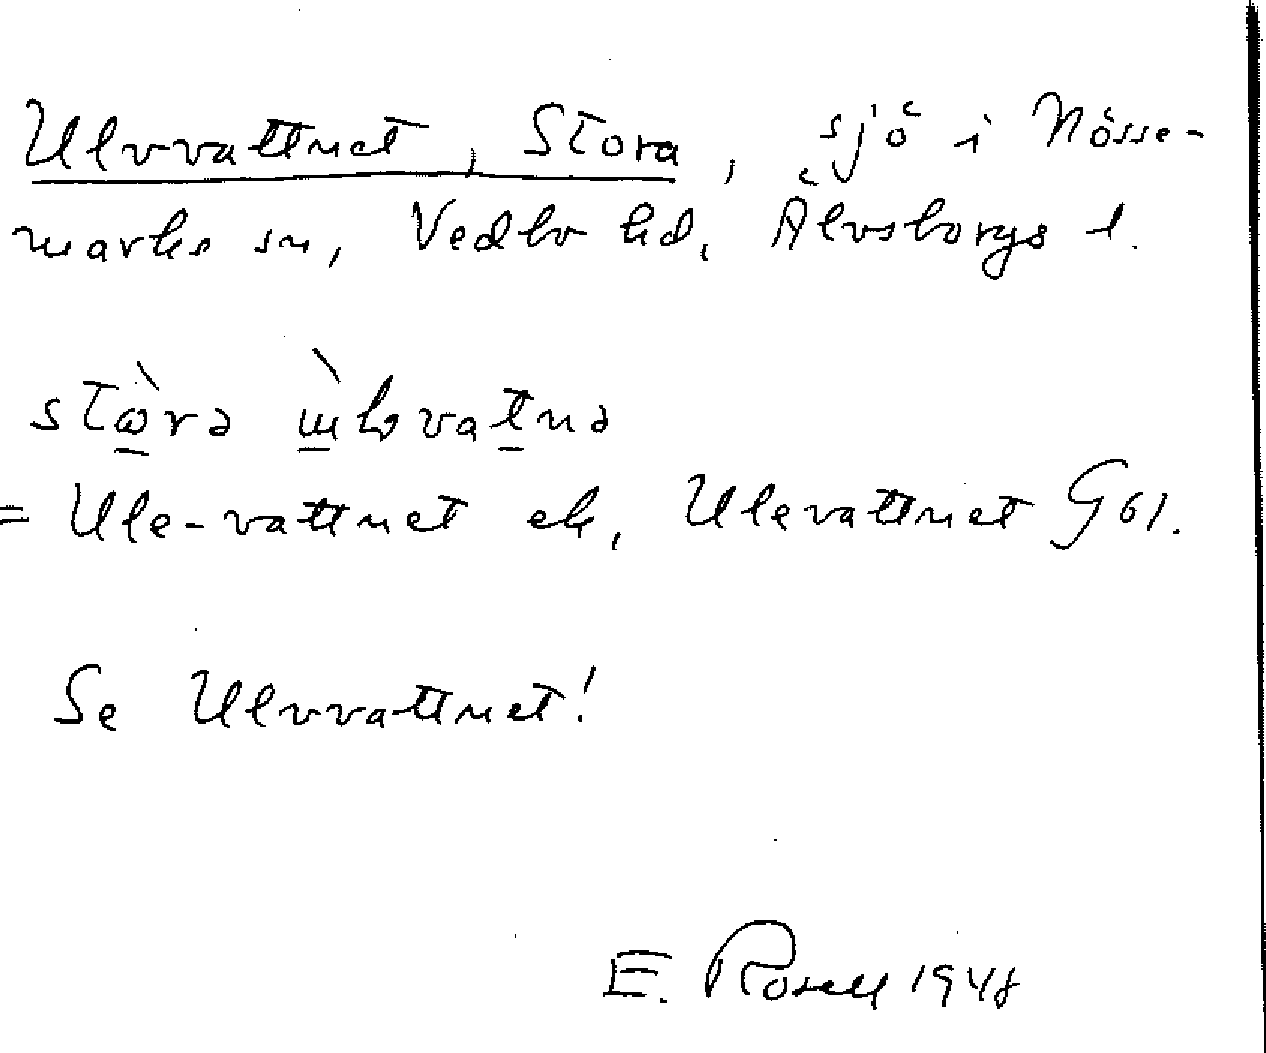 Ulvvattnet, Stora, sjö i Nösse-
marks sn, Vedbo hd, Älvsborgs l.
= Ule-vattnet ek, Ulevattnet G61.
Se Ulvvattnet!
E. Rosell 1948